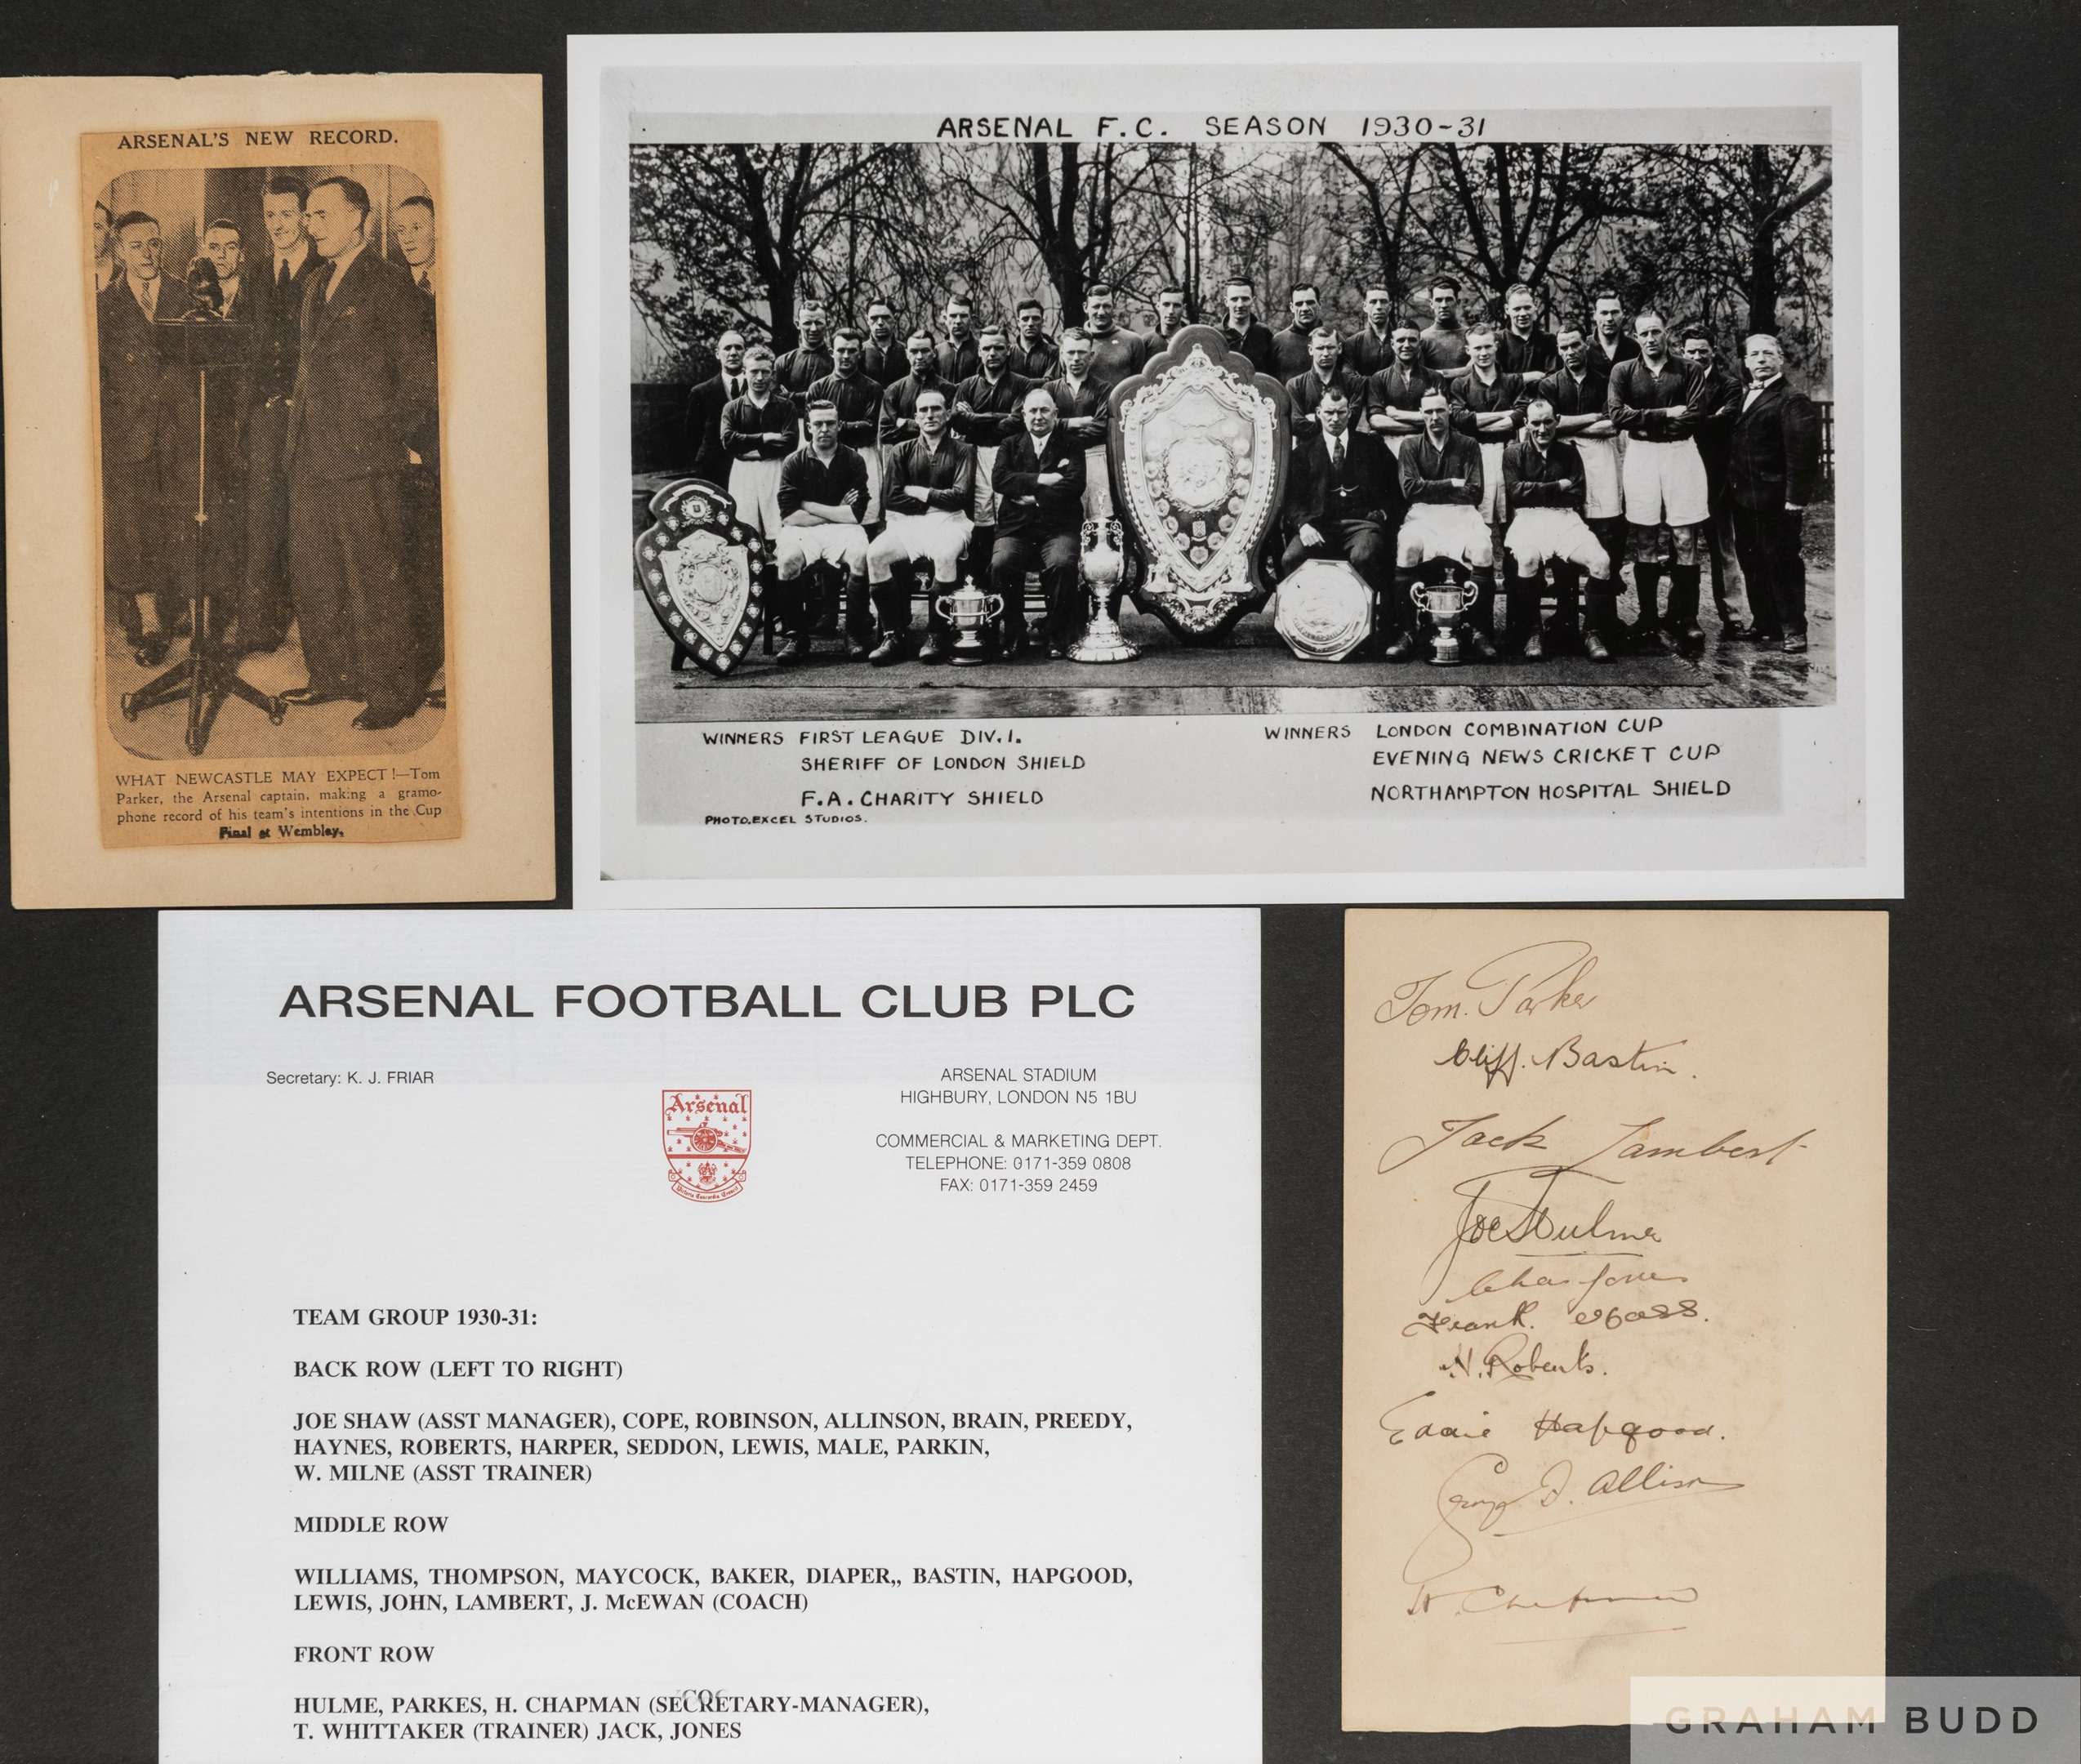 ARSENAL'S NEW RECORD.
WHAT NEWCASTLE MAY EXPECT!—Tom
Parker, the Arsenal captain, making a gramo-
phone record of his team's intentions in the Cup
Final at Wembley.
ARSENAL F.C. SEASON 1930-31
WINNERS FIRST LEAGUE DIV.I.
SHERIFF OF LONDON SHIELD
F.A. CHARITY SHIELD
PHOTO.EXCEL STUDIOS.
WINNERS LONDON COMBINATION CUP
EVENING NEWS CRICKET CUP
NORTHAMPTON HOSPITAL SHIELD
ARSENAL FOOTBALL CLUB PLC
Secretary: K. J. FRIAR
Arsenal
Victoria Concordia Crescit
ARSENAL STADIUM
HIGHBURY, LONDON N5 1BU
COMMERCIAL & MARKETING DEPT.
TELEPHONE: 0171-359 0808
FAX: 0171-359 2459
TEAM GROUP 1930-31:
BACK ROW (LEFT TO RIGHT)
JOE SHAW (ASST MANAGER), COPE, ROBINSON, ALLINSON, BRAIN, PREEDY,
HAYNES, ROBERTS, HARPER, SEDDON, LEWIS, MALE, PARKIN,
W. MILNE (ASST TRAINER)
MIDDLE ROW
WILLIAMS, THOMPSON, MAYCOCK, BAKER, DIAPER,, BASTIN, HAPGOOD,
LEWIS, JOHN, LAMBERT, J. McEWAN (COACH)
FRONT ROW
HULME, PARKES, H. CHAPMAN (SECRETARY-MANAGER),
T. WHITTAKER (TRAINER) JACK, JONES
Tom. Parker
Cliff. Bastin.
Jack Lambert
Joe Hulme
Chas Jones
Frank.
H. Roberts.
Eddie Hapgood.
George F. Allison
H. Chapman
GRAHAM BUDD